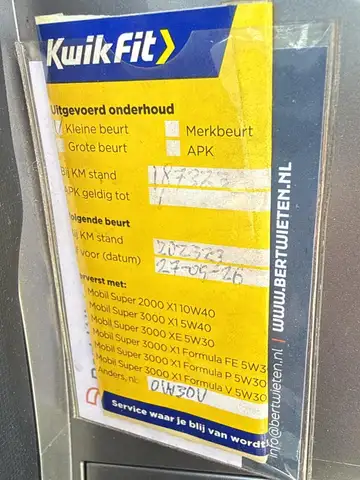 KwikFit
Uitgevoerd onderhoud
Kleine beurt Merkbeurt
Grote beurt APK
Bij KM stand 187323
APK geldig tot /
olgende beurt
ij KM stand 202323
f voor (datum) 27-09-26
erverst met:
Mobil Super 2000 X1 10W40
Mobil Super 3000 X1 5W40
Mobil Super 3000 XE 5W30
Mobil Super 3000 X1 Formula FE 5W3
Mobil Super 3000 X1 Formula P 5W30
Mobil Super 3000 X1 Formula V 5W30
Anders, nl.: 0W30V
Service waar je blij van wordt
WWW.BERTWIETEN.NL
info@bertwieten.nl